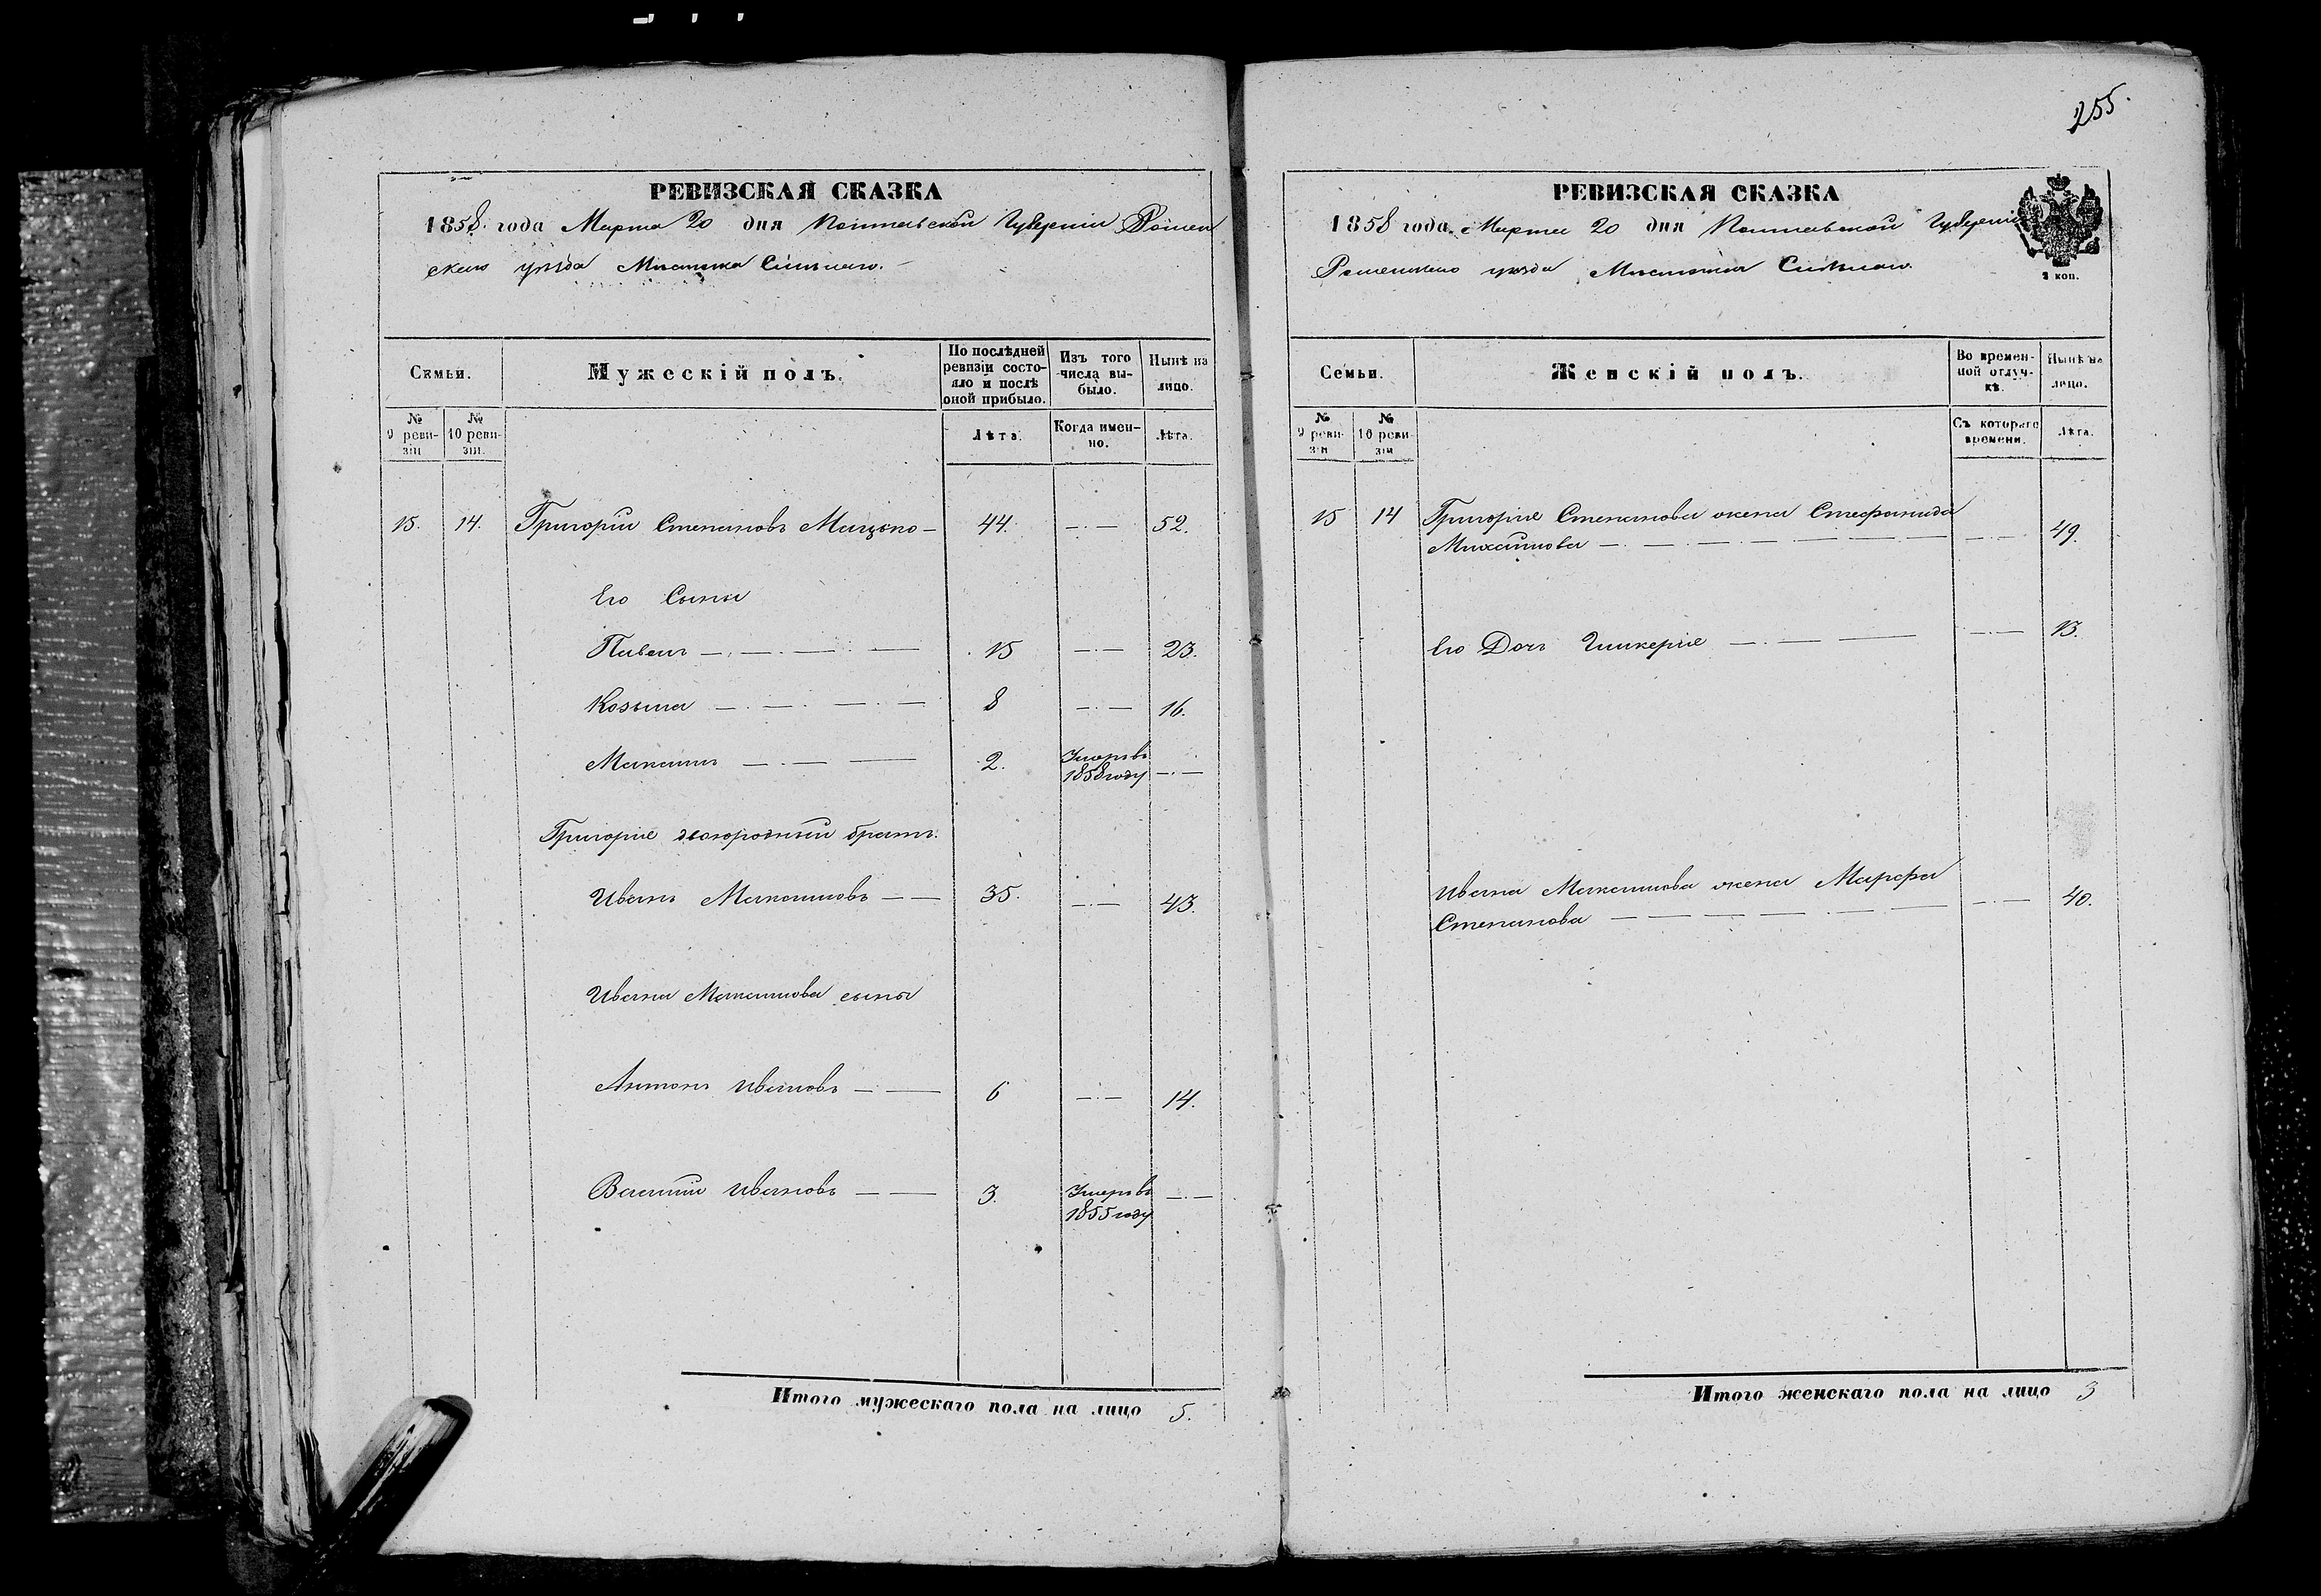 255.
РЕВИЗСКАЯ СКАЗКА
1858. года Марта 20 дня Полтавской Губерніи Ромен
скаго уѣзда Мѣстечка Смѣлаго.
Семьи.
Мужескій полъ.
По послѣдней ревизіи состояло и послѣ оной прибыло.
Изъ того числа выбыло.
Нынѣ на лицо.
№ 9 ревизіи
№ 10 ревизіи.
Лѣта.
Когда именно.
Лѣта.
15. 14. Григорій Степановъ Мацько — 44. — 52.
Его Сыны
Павелъ — 15 — 23.
Козьма — 8 — 16.
Максимъ — 2. Умеръ въ
1858 году —
Григорія двоюродный братъ.
Иванъ Максимовъ — 35. — 43.
Ивана Максимова сыны
Антонъ Ивановъ — 6 — 14.
Василій Ивановъ — 3. Умеръ въ
1855 году —
Итого мужескаго пола на лицо 5.
РЕВИЗСКАЯ СКАЗКА
1858 года Марта 20 дня Полтавской Губерніи
Роменскаго уѣзда Мѣстечка Смѣлаго.
2 коп.
Семьи.
Женскій полъ.
Во временной отлучкѣ.
Нынѣ на лицо.
№ 9 ревизіи
№ 10 ревизіи
Съ котораго времени.
Лѣта.
15 14 Григорія Степанова жена Стефанида
Михайлова — — 49.
Его Дочь Гликерія — — 13.
Ивана Максимова жена Марфа
Степанова — — 40.
Итого женскаго пола на лицо 3